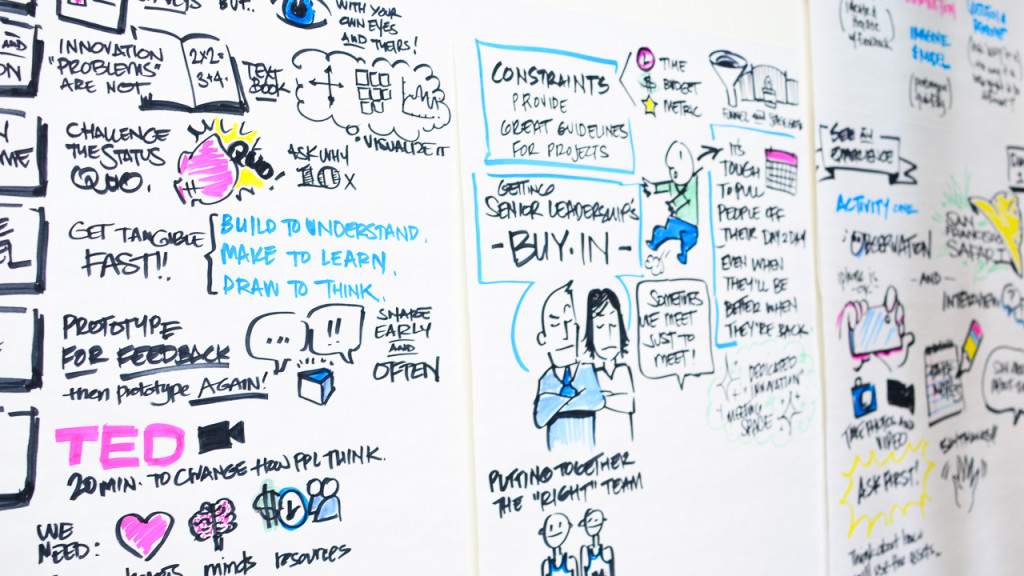 BUT..
WITH YOUR
OWN EYES
AND THEIRS!
AND
INNOVATION
"PROBLEMS"
ARE NOT
2x2=
3+4.
TEXT
BOOK
• VISUALIZE IT
CHALLENGE
THE STATUS
QUO.
QUO
ASK WHY
10x
GET TANGIBLE
FAST!!
BUILD TO UNDERSTAND.
MAKE TO LEARN.
DRAW TO THINK.
PROTOTYPE
FOR FEEDBACK
then prototype AGAIN!
...
!!
SHARE
EARLY
AND
OFTEN
TED
20 MIN. TO CHANGE HOW PPL THINK.
WE
NEED:
$
minds
resources
CONSTRAINTS
PROVIDE
GREAT GUIDELINES
FOR PROJECTS
TIME
$ BUDGET
METRIC
GETTING
SENIOR LEADERSHIP'S
- BUY·IN -
IT'S
TOUGH
TO PULL
PEOPLE OFF
THEIR DAY2DAY
EVEN WHEN
THEY'LL BE
BETTER WHEN
THEY'RE BACK.
SOMETIMES
WE MEET
JUST TO
MEET!
DEDICATED
INNOVATION
MEETING
SPACE
PUTTING TOGETHER
THE "RIGHT" TEAM
EXPERIENCE
ACTIVITY ONE
OBSERVATION
— AND —
INTERVIEW
SAN
FRANCISCO
SAFARI
TAKE PHOTOS AND
VIDEO
ASK FIRST!
Think about how